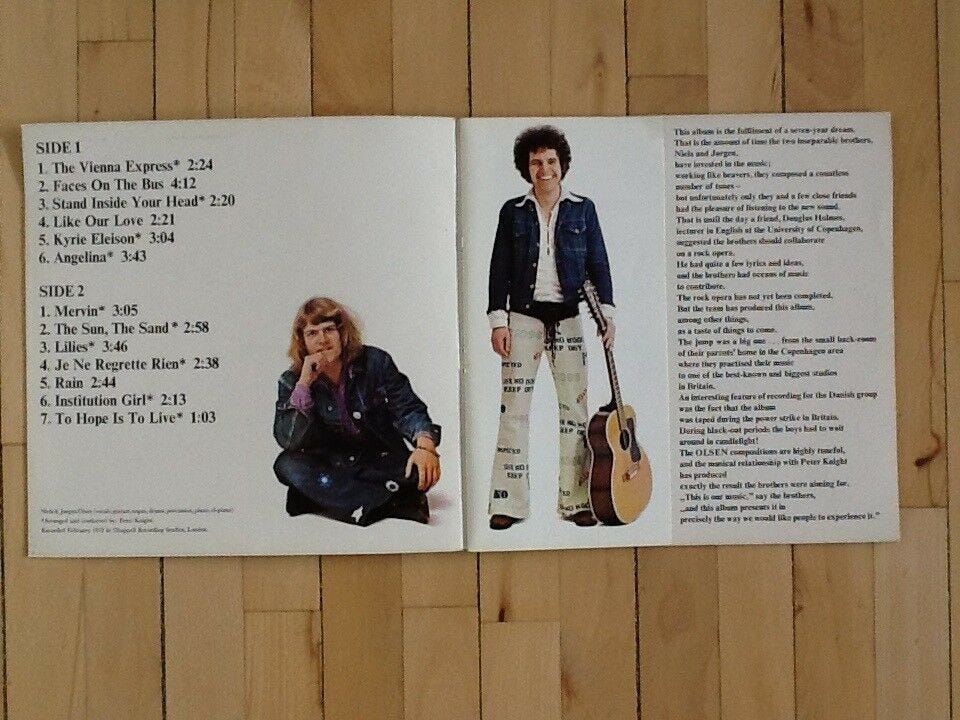 SIDE 1
1. The Vienna Express* 2:24
2. Faces On The Bus 4:12
3. Stand Inside Your Head* 2:20
4. Like Our Love 2:21
5. Kyrie Eleison* 3:04
6. Angelina* 3:43
SIDE 2
1. Mervin* 3:05
2. The Sun, The Sand* 2:58
3. Lilies* 3:46
4. Je Ne Regrette Rien* 2:38
5. Rain 2:44
6. Institution Girl* 2:13
7. To Hope Is To Live* 1:03
*Arranged and conducted by: Peter Knight.
Recorded February 1972 in Recording Studios, London.
This album is the fulfilment of a seven-year dream.
That is the amount of time the two inseparable brothers,
Niels and Jørgen,
have invested in the music;
working like beavers, they composed a countless
number of tunes –
but unfortunately only they and a few close friends
had the pleasure of listening to the new sound.
That is until the day a friend, Douglas Holmes,
lecturer in English at the University of Copenhagen,
suggested the brothers should collaborate
on a rock opera.
He had quite a few lyrics and ideas,
and the brothers had oceans of music
to contribute.
The rock opera has not yet been completed.
But the team has produced this album,
among other things,
as a taste of things to come.
The jump was a big one ... from the small back-room
of their parents' home in the Copenhagen area
where they practised their music
to one of the best-known and biggest studios
in Britain.
An interesting feature of recording for the Danish group
was the fact that the album
was taped during the power strike in Britain.
During black-out periods the boys had to wait
around in candlelight!
The OLSEN compositions are highly tuneful,
and the musical relationship with Peter Knight
has produced
exactly the result the brothers were aiming for.
„This is our music,” say the brothers,
„and this album presents it in
precisely the way we would like people to experience it.”